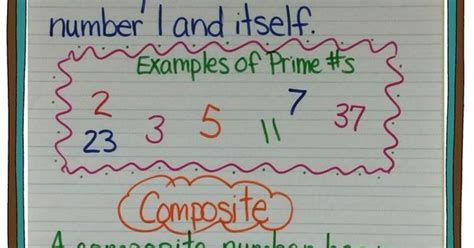 number 1 and itself.
Examples of Prime #s
2 3 5 7 37
23 11
Composite
A composite number has